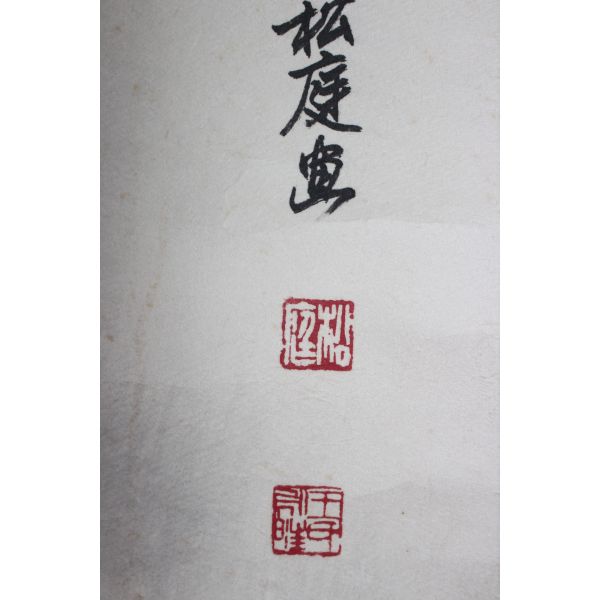 松庭画
松庭